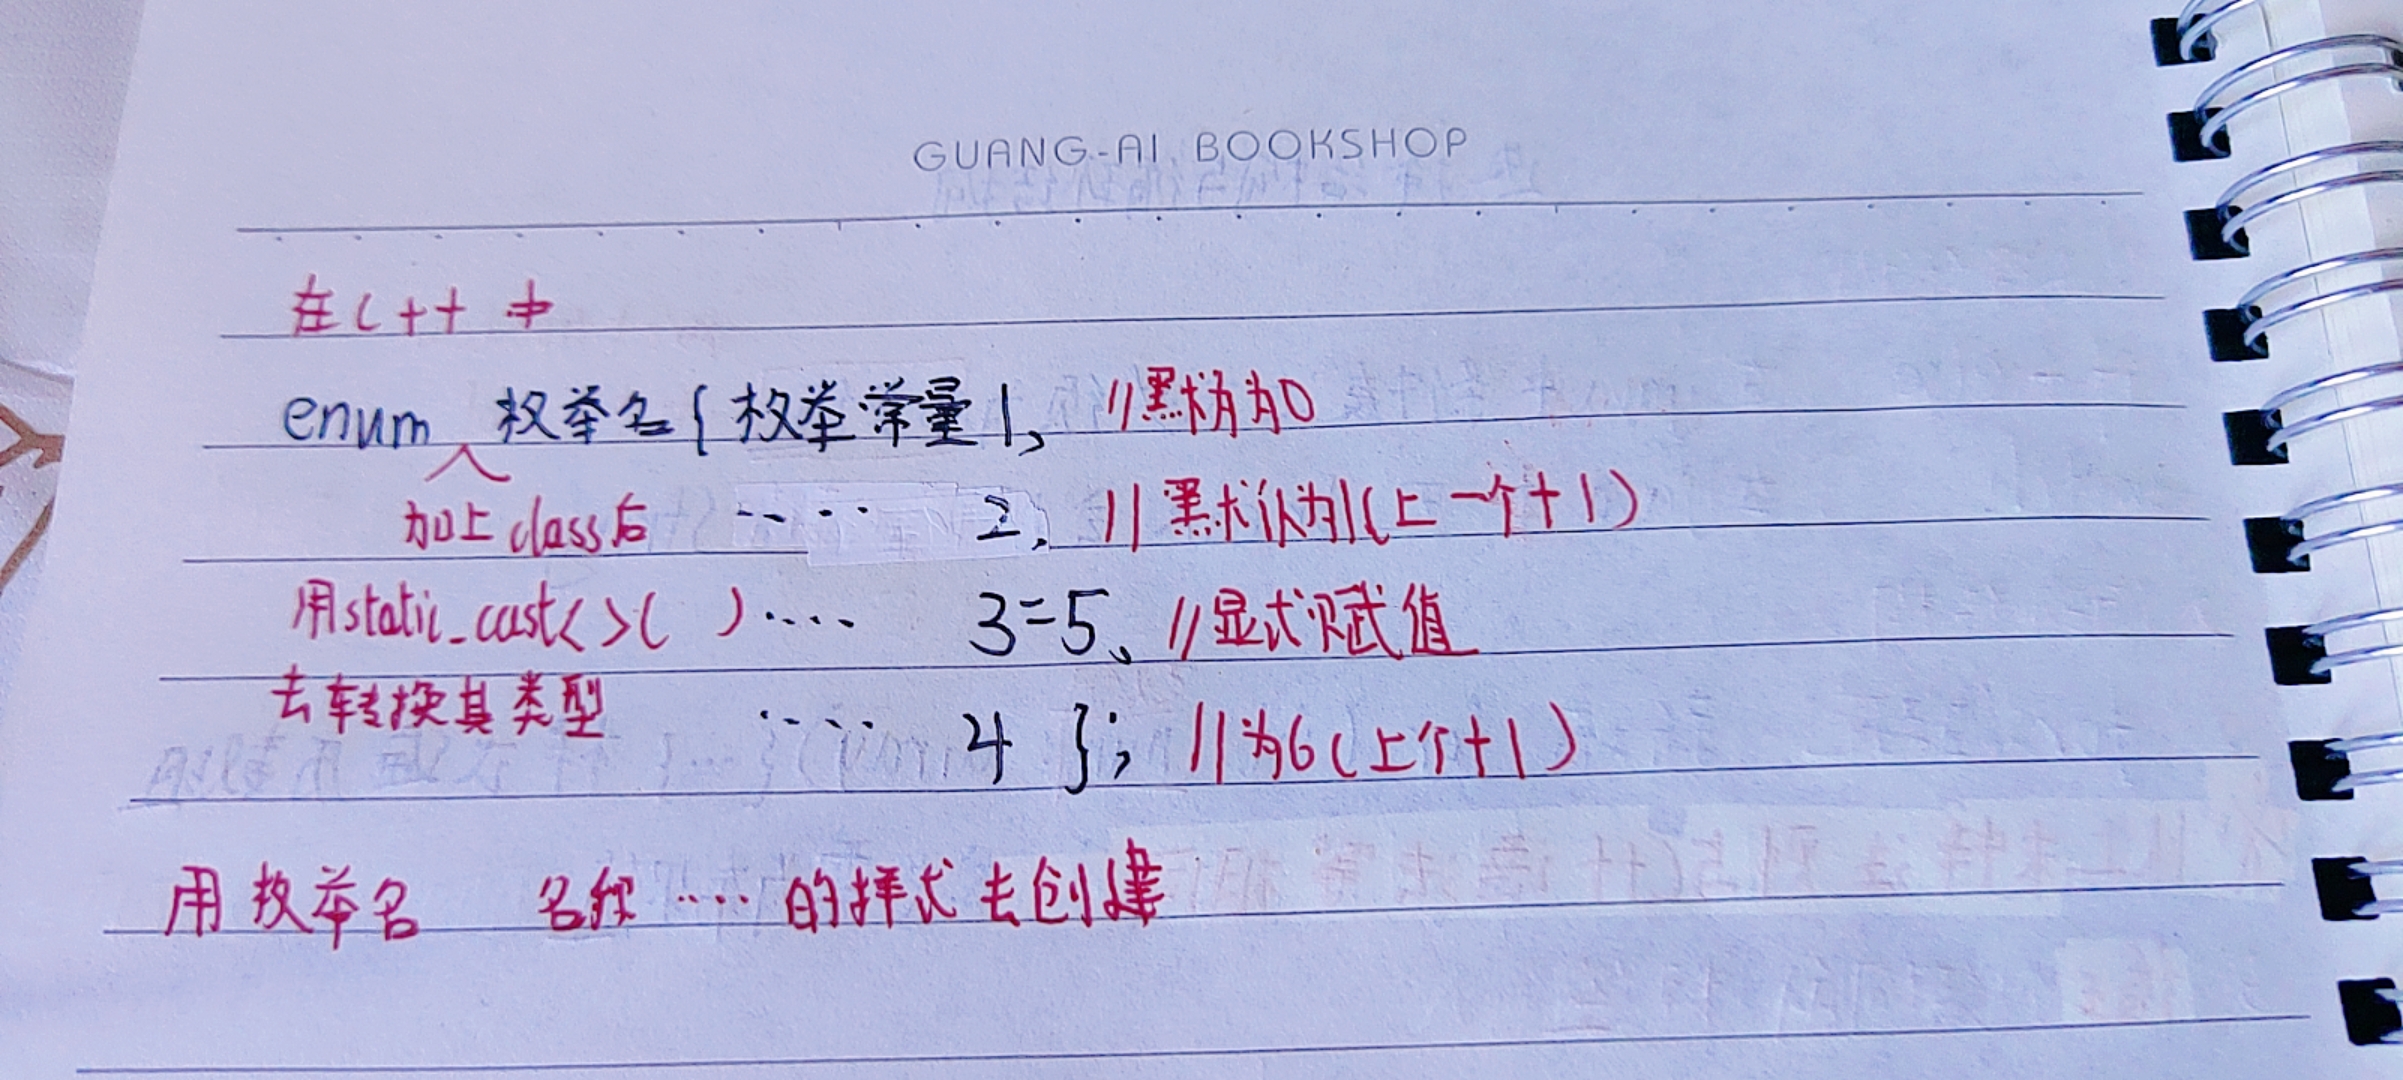 GUANG-AI BOOKSHOP
在C++中
enum 枚举名{枚举常量1, //默认为0
加上class后 ····· 2, //默认为1(上一个+1)
用static_cast<>( ) ···· 3=5, //显式赋值
去转换其类型 ····· 4 }; //为6(上个+1)
用枚举名 名称 ···· 的样式去创建